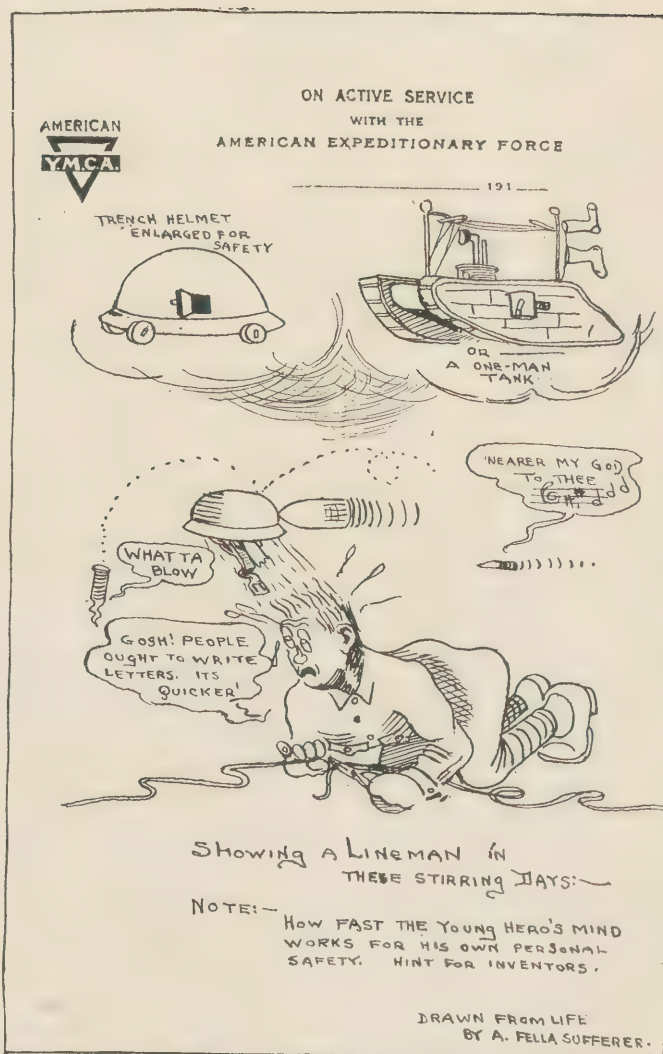 ON ACTIVE SERVICE
WITH THE
AMERICAN EXPEDITIONARY FORCE
AMERICAN
Y.M.C.A.
191
TRENCH HELMET
ENLARGED FOR
SAFETY
OR
A ONE-MAN
TANK
'NEARER MY GOD
TO THEE
WHAT TA
BLOW
GOSH! PEOPLE
OUGHT TO WRITE
LETTERS. ITS
QUICKER!
SHOWING A LINEMAN IN
THESE STIRRING DAYS:—
NOTE:—
HOW FAST THE YOUNG HERO'S MIND
WORKS FOR HIS OWN PERSONAL
SAFETY. HINT FOR INVENTORS.
DRAWN FROM LIFE
BY A. FELLA SUFFERER.